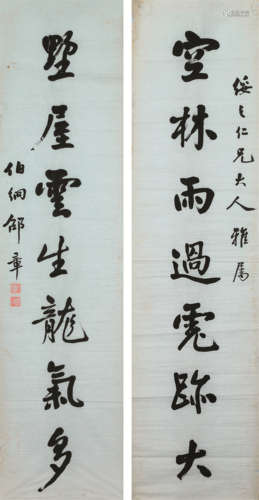 綏之仁兄大人雅屬
空林雨過虎跡大
壁屋雲生龍氣多
伯絅邵章